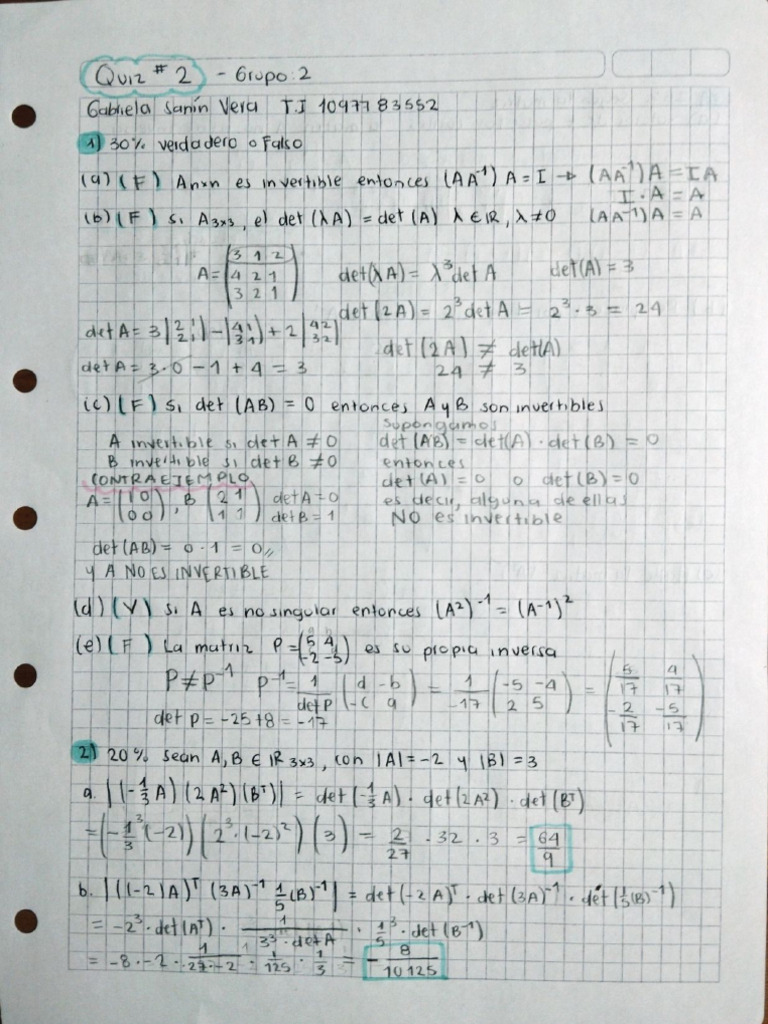 Quiz # 2 - Grupo: 2
Gabriela Sanín Vera T.I 1097783552
1) 30% verdadero o Falso
(a) (F) Anxn es invertible entonces (AA⁻¹) A = I → (AA⁻¹)A = IA
I · A = A
(b) (F) si A₃ₓ₃, el det (λA) = det (A) λ ∈ ℝ, λ ≠ 0 (AA⁻¹)A = A
A = (3 1 2
4 2 1
3 2 1)
det(λA) = λ³ det A det(A) = 3
det (2A) = 2³ det A = 2³ · 3 = 24
det A = 3 |2 1 2 1| - |4 1 3 1| + 2 |4 2 3 2|
det (2A) ≠ det(A)
det A = 3·0 - 1 + 4 = 3
24 ≠ 3
(c) (F) Si det (AB) = 0 entonces A y B son invertibles
Supongamos
A invertible si det A ≠ 0 det (AB) = det(A) · det(B) = 0
B invertible si det B ≠ 0 entonces
CONTRAEJEMPLO det (A) = 0 o det (B) = 0
A = (1 0 0 0), B (2 1 1 1) det A = 0 es decir, alguna de ellas
det B = 1 NO es invertible
det (AB) = 0 · 1 = 0//
y A NO ES INVERTIBLE
(d) (V) si A es no singular entonces (A²)⁻¹ = (A⁻¹)²
(e) (F) La matriz P = (5 4 -2 -5) es su propia inversa
P ≠ P⁻¹ P⁻¹ = 1/det P (d -b -c a) = 1/-17 (-5 -4 2 5) = (5/17 4/17 -2/17 -5/17)
det P = -25 + 8 = -17
2) 20% sean A, B ∈ ℝ₃ₓ₃, con |A| = -2 y |B| = 3
a. |(-1/3 A) (2A²) (Bᵀ)| = det (-1/3 A) · det (2A²) · det (Bᵀ)
= (-1/3³ (-2)) (2³ · (-2)²) (3) = 2/27 · 32 · 3 = 64/9
b. |((-2)A)ᵀ (3A)⁻¹ 1/5 (B)⁻¹| = det (-2A)ᵀ · det (3A)⁻¹ · det (1/5 (B)⁻¹)
= -2³ · det (Aᵀ) · 1/3³ · det A · 1/5³ · det (B⁻¹)
= -8 · -2 · 1/27 · -2 · 1/125 · 1/3 = - 8/10125